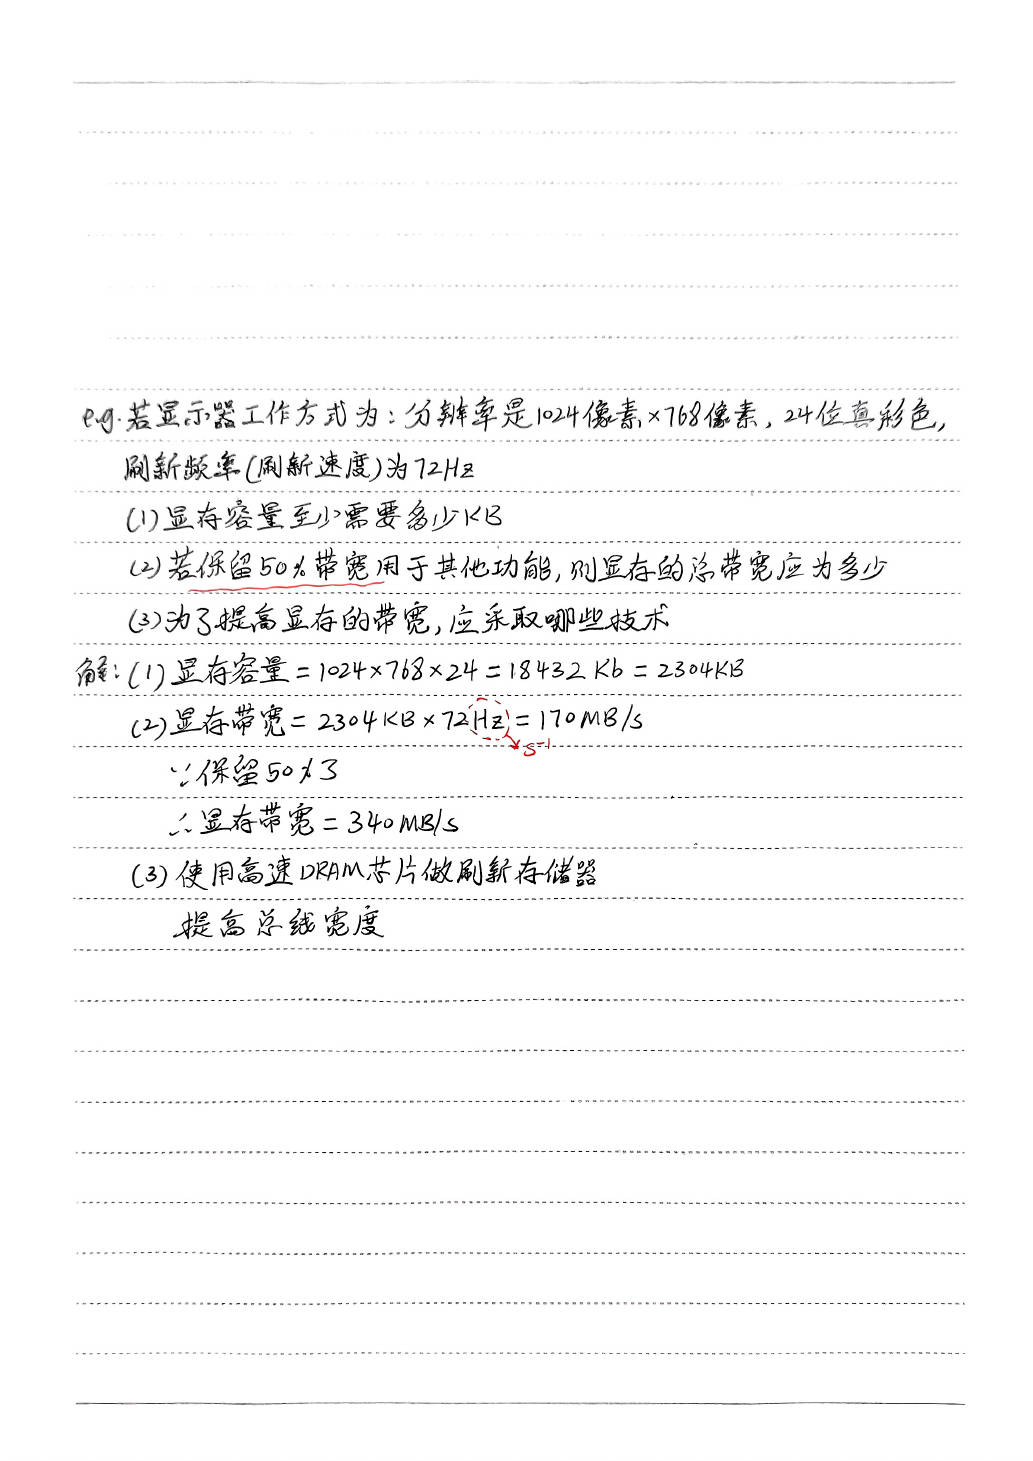 e.g. 若显示器工作方式为: 分辨率是1024像素×768像素, 24位真彩色,
刷新频率(刷新速度)为72Hz
(1)显存容量至少需要多少KB
(2)若保留50%带宽用于其他功能, 则显存的总带宽应为多少
(3)为了提高显存的带宽, 应采取哪些技术
解: (1)显存容量=1024×768×24=18432 Kb=2304KB
(2)显存带宽=2304KB×72Hz=170MB/s
s⁻¹
∵保留50%了
∴显存带宽=340MB/s
(3)使用高速DRAM芯片做刷新存储器
提高总线宽度